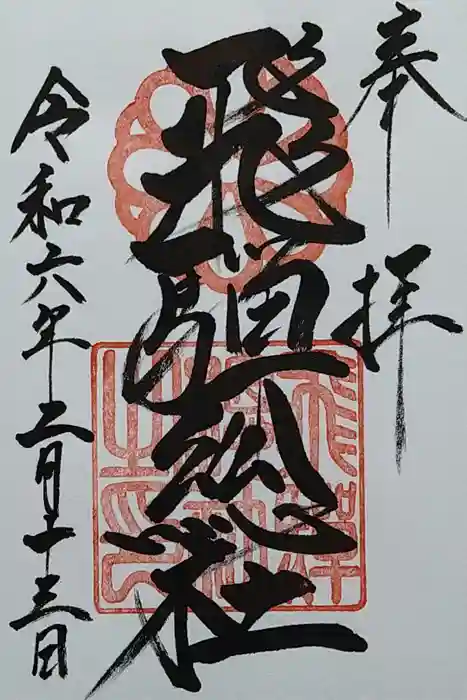 奉拝
飛騨総社
令和六年二月十三日